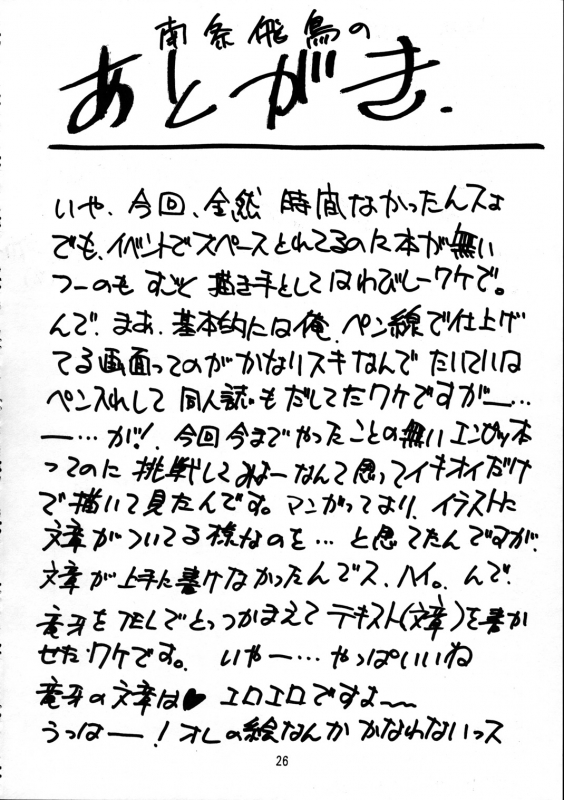 南条飛鳥の
あとがき.
いや、今回、全然 時間なかったんスよ
でも、イベントでスペースとれてるのに本が無い
つーのも すごく 描き手としてはわびしーワケで。
んで、まぁ、基本的には俺、ペン線で仕上げ
てる画面ってのが かなりスキなんで たいていは
ペン入れして 同人誌もだしてたワケですがー…
ー…が!、今回今までやったことの無いエンピツ本
ってのに 挑戦してみよーなんて思ってイキオイだけ
で描いて見たんです。マンガってより、イラストに
文章がついてる様なのを… と思てたんですが、
文章が上手に書けなかったんでス、ハイ。んで、
竜牙をTELでとっつかまえて テキスト(文章)を書か
せたワケです。 いやー… やっぱいいね
竜牙の文章は♥ エロエロですよ〜〜
うっはー! オレの絵なんか かなわないっス
26